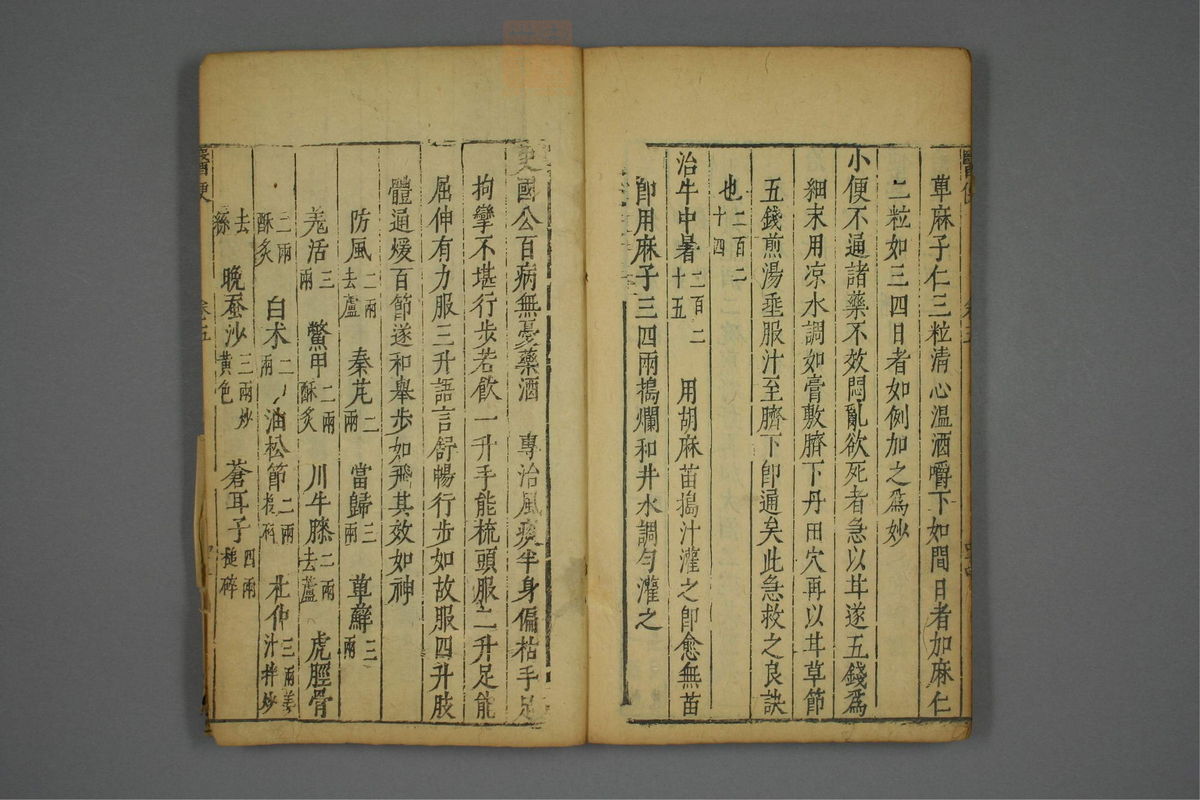 草麻子仁三粒清心温酒嚼下如間日者加麻仁
二粒如三四日者如例加之爲妙
小便不通諸藥不效悶亂欲死者急以甘遂五錢爲
細末用凉水調如膏敷臍下丹田穴再以甘草節
五錢煎湯乗服汁至臍下卽通矣此急救之良訣
也二百二十四
治牛中暑二百二十五 用胡麻苗搗汁灌之卽愈無苗
卽用麻子三四兩搗爛和井水調勻灌之
史國公百病無憂藥酒 專治風痰半身偏枯手足
拘攣不堪行步若飲一升手能梳頭服二升足能
屈伸有力服三升語言舒暢行步如故服四升肢
體通煖百節遂和舉步如飛其效如神
防風二兩去蘆 秦芃二兩 當歸三兩 萆薢三兩
羗活三兩 鱉甲二兩酥炙 川牛膝二兩去蘆 虎脛骨
二兩酥炙 白术二兩 油松節二兩搥碎 杜仲三兩姜汁拌炒
去絲 晚蚕沙三兩炒黃色 蒼耳子四兩搥碎
醫便 卷五